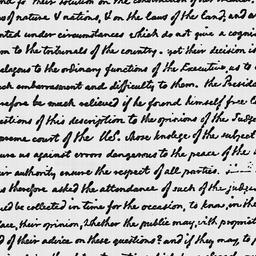 for their solution on the construction of our treaties,
s of nature & nations, & on the laws of the land; and are
nted under circumstances which do not give a cogni
on to the tribunals of the country. yet their decision is
alagous to the ordinary functions of the Executive, as to
ch embarrasment and difficulty to them. the Preside
efore be much relieved if he found himself free to
estions of this description to the opinions of the Judge
preme court of the U.S. whose knolege of the subject
ure us against errors dangerous to the peace of the
ir authority ensure the respect of all parties.
s therefore asked the attendance of such of the judges
uld be collected in time for the occasion, to know, in the
lace, their opinion, Whether the public may, with propriet
d of their advice on these questions? and if they may, to p